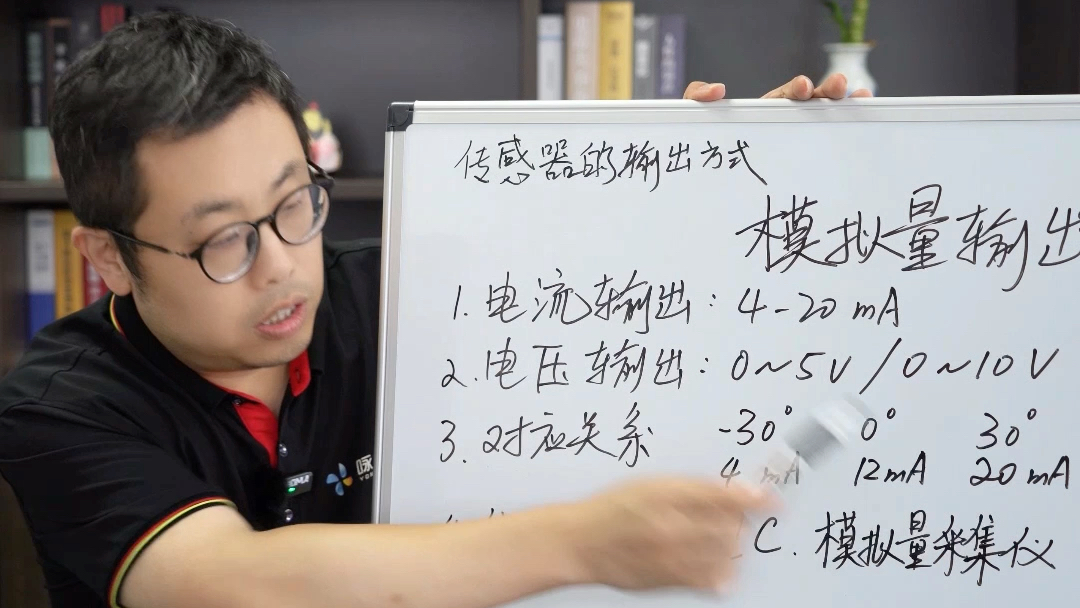 传感器的输出方式
模拟量输出
1. 电流输出: 4-20 mA
2. 电压输出: 0~5V / 0~10V
3. 对应关系 -30° 0° 30°
4 mA 12mA 20mA
C. 模拟量采集仪
咏